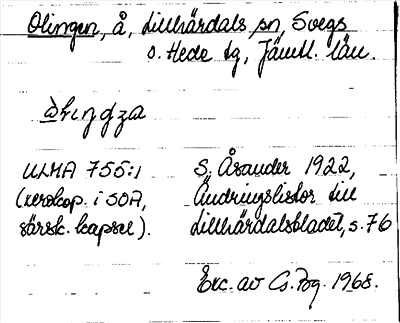 Olingen, å, Lillhärdals sn, Svegs
o. Hede tg, Jämtl. län.
ULMA 755:1 S. Åsander 1922,
(xerokop. i SOA, Ändringslistor till
särsk. kapsel). Lillhärdalsbladet, s. 76
Exc. av Cs. Pog. 1968.